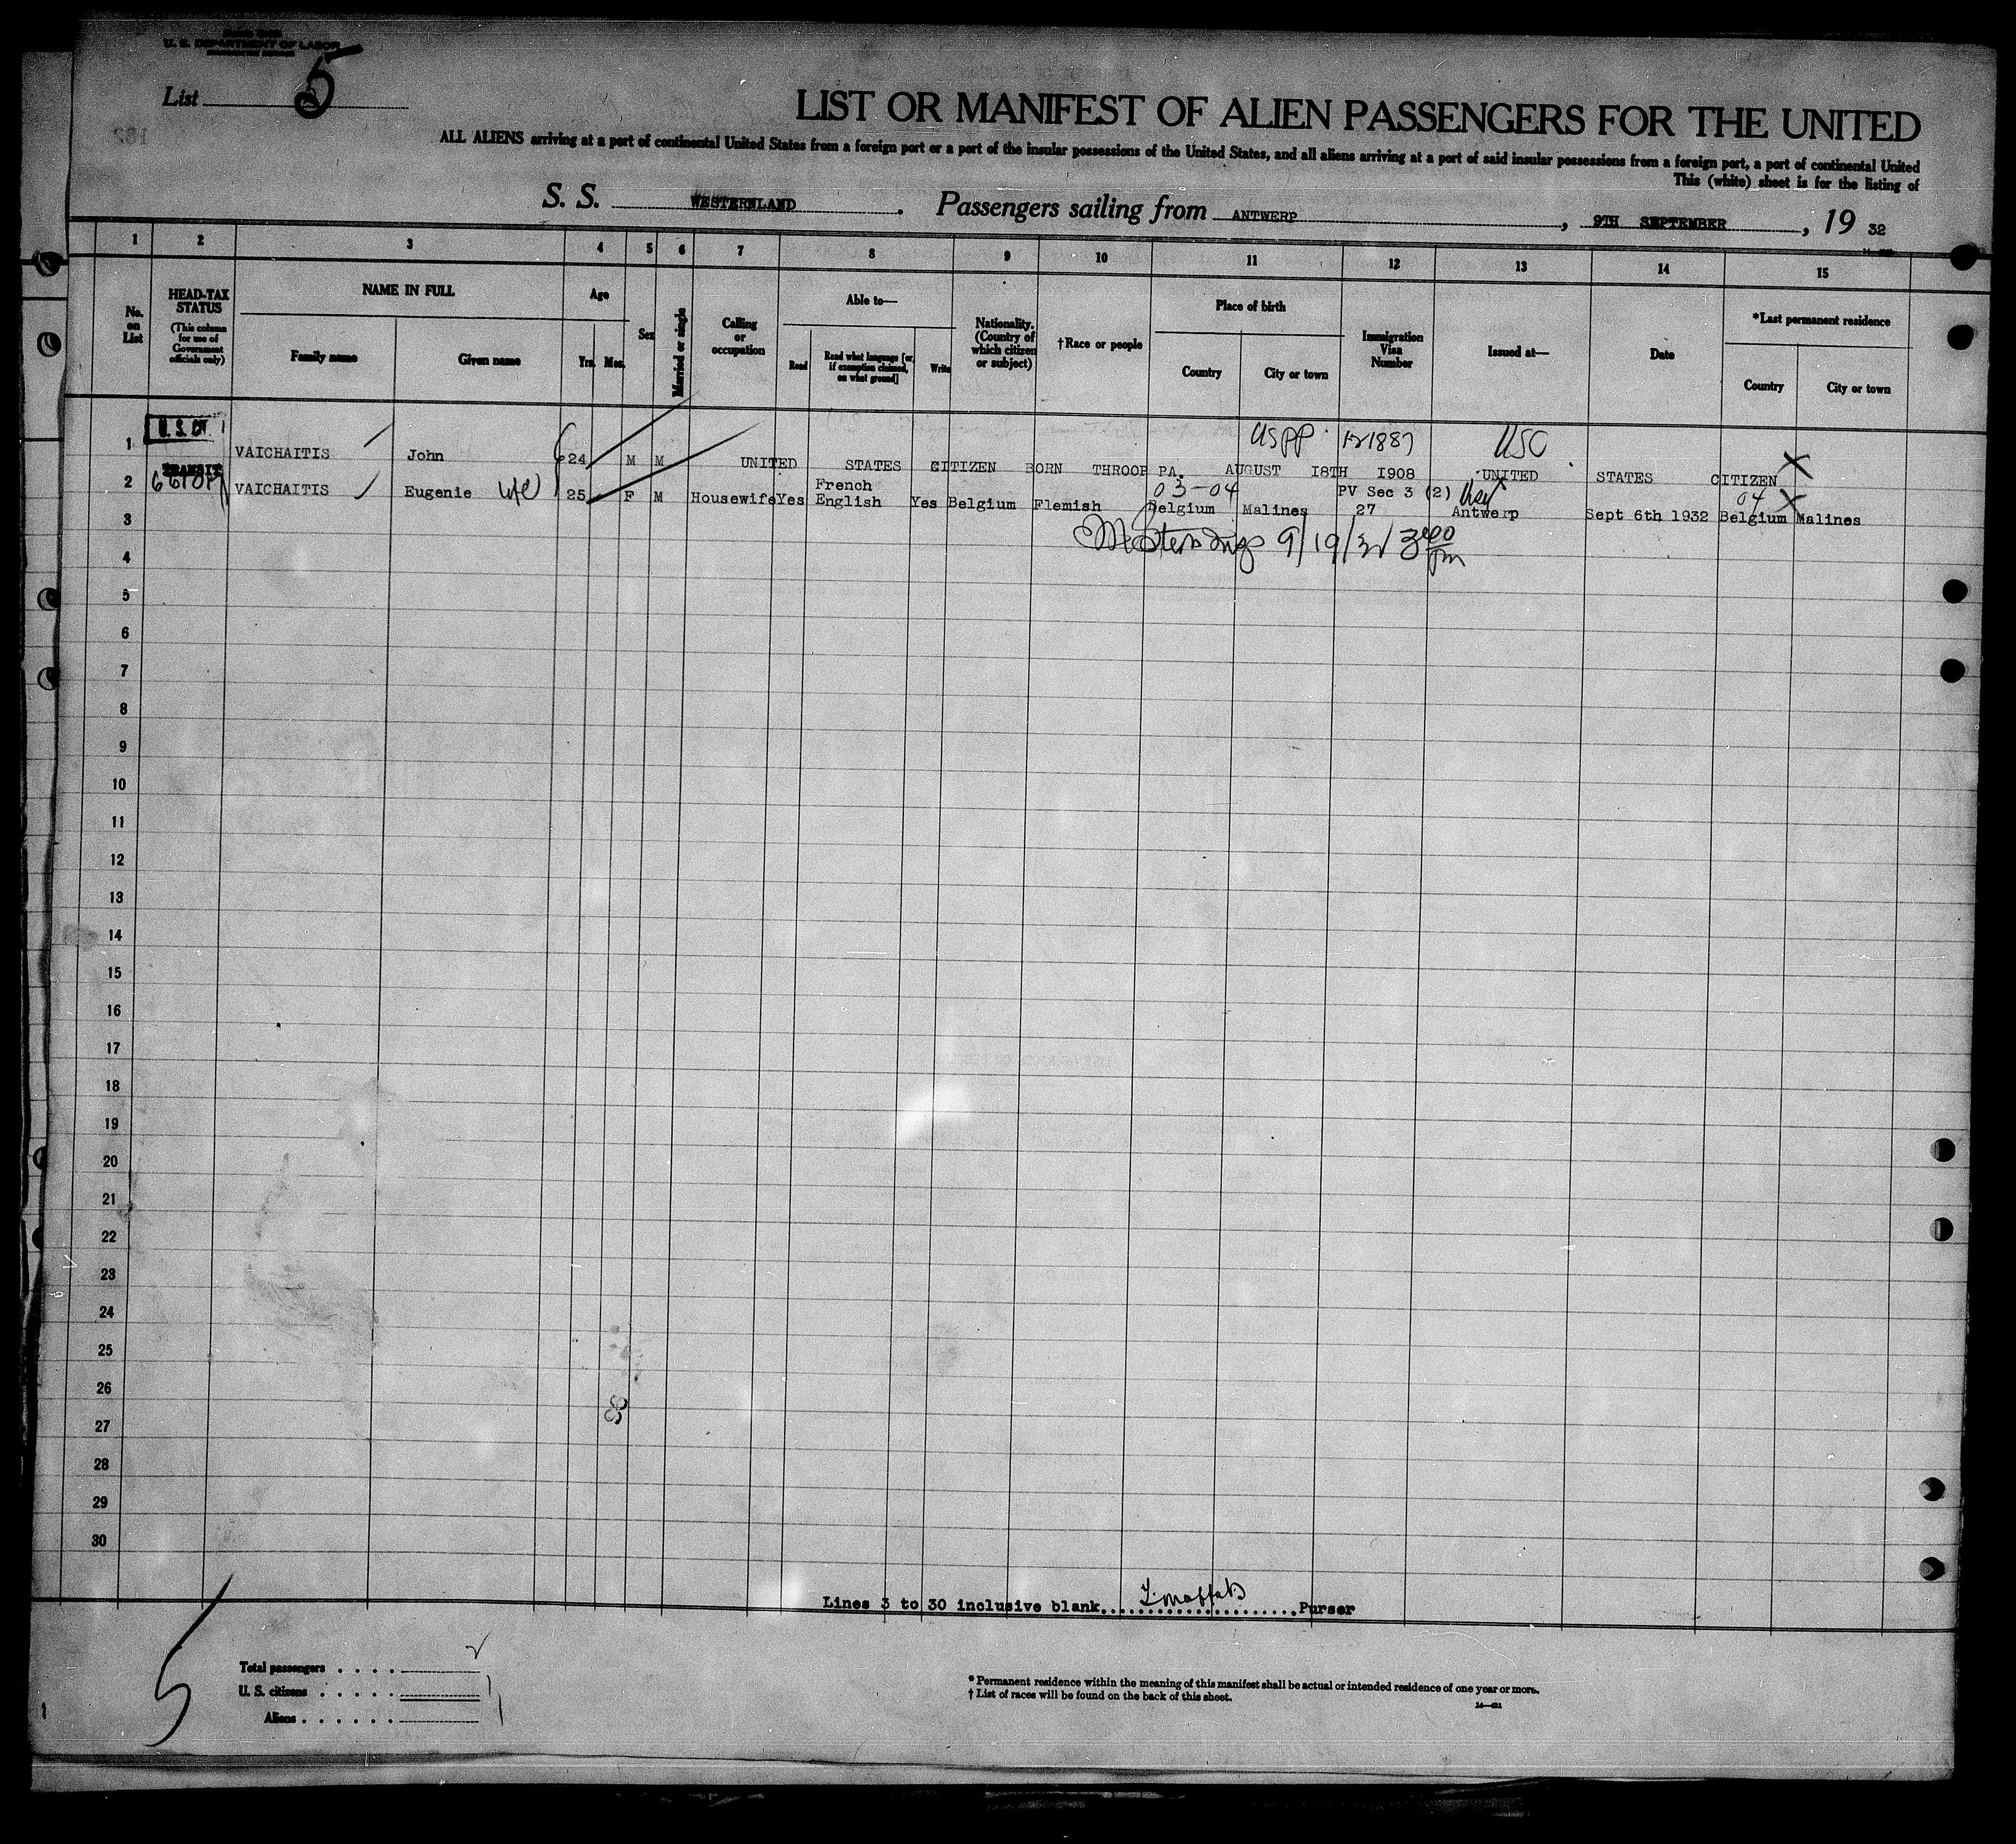 U. S. DEPARTMENT OF LABOR
List 5
LIST OR MANIFEST OF ALIEN PASSENGERS FOR THE UNITED
ALL ALIENS arriving at a port of continental United States from a foreign port or a port of the insular possessions of the United States, and all aliens arriving at a port of said insular possessions from a foreign port, a port of continental United
This (white) sheet is for the listing of
S. S. WESTERNLAND. Passengers sailing from ANTWERP, 9TH SEPTEMBER, 19 32
1 2 3 4 5 6 7 8 9 10 11 12 13 14 15
No. on List
HEAD-TAX STATUS (This column for use of Government officials only)
NAME IN FULL
Family name
Given name
Age
Yrs. Mos.
Sex
Married or single
Calling or occupation
Able to—
Read
Read what language [or, if exemption claimed, on what ground]
Write
Nationality. (Country of which citizen or subject)
†Race or people
Place of birth
Country
City or town
Immigration Visa Number
Issued at—
Date
*Last permanent residence
Country
City or town
USPP 121887 USC
1 VAICHAITIS John 24 M M UNITED STATES CITIZEN BORN THROOP PA. AUGUST 18TH 1908 UNITED STATES CITIZEN
TRANSIT
French 03-04 PV Sec 3 (2) 04
2 VAICHAITIS Eugenie wife 25 F M Housewife Yes English Yes Belgium Flemish Belgium Malines 27 Antwerp Sept 6th 1932 Belgium Malines
9/19/32 3 40 pm
3
4
5
6
7
8
9
10
11
12
13
14
15
16
17
18
19
20
21
22
23
24
25
26
27
28
29
30
Lines 3 to 30 inclusive blank.....................Purser
5
Total passengers . . . . 2
U. S. citizens . . . . . 1
Aliens . . . . . . 1
* Permanent residence within the meaning of this manifest shall be actual or intended residence of one year or more.
† List of races will be found on the back of this sheet.